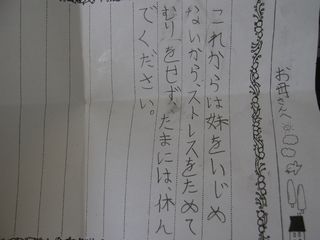 お母さんへ
これからは妹をいじめ
ないから、ストレスをためて
むりをせず、たまには、休ん
でください。